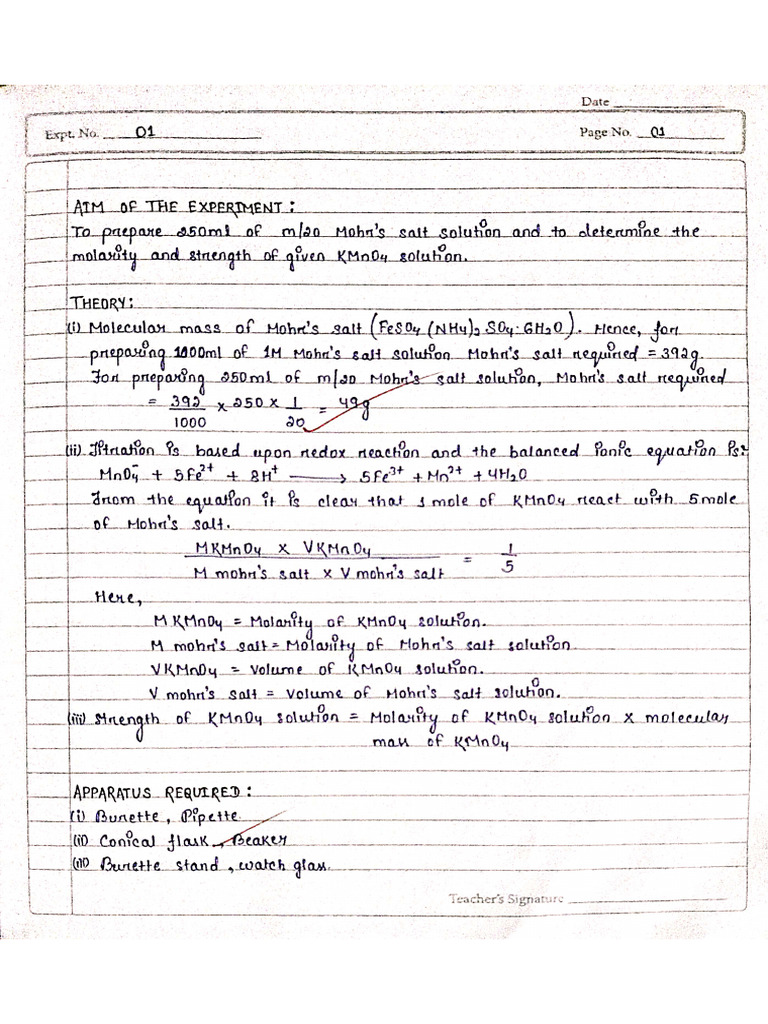 Date
Expt. No. 01
Page No. 01
AIM OF THE EXPERIMENT:
To prepare 250ml of m/20 Mohr's salt solution and to determine the
molarity and strength of given KMnO4 solution.
THEORY:
(i) Molecular mass of Mohr's salt (FeSO4 (NH4)2 SO4·6H2O). Hence, for
preparing 1000ml of 1M Mohr's salt solution Mohr's salt required = 392g.
For preparing 250ml of m/20 Mohr's salt solution, Mohr's salt required
= 392/1000 x 250 x 1/20 = 49g
(ii) Titration is based upon redox reaction and the balanced ionic equation is:-
MnO4⁻ + 5Fe²⁺ + 8H⁺ ⟶ 5Fe³⁺ + Mn²⁺ + 4H2O
From the equation it is clear that 1 mole of KMnO4 react with 5 mole
of Mohr's salt.
MKMnO4 x VKMnO4 / M mohr's salt x V mohr's salt = 1/5
Here,
MKMnO4 = Molarity of KMnO4 solution.
M mohr's salt = Molarity of Mohr's salt solution
VKMnO4 = volume of KMnO4 solution.
V mohr's salt = volume of Mohr's salt solution.
(iii) Strength of KMnO4 solution = Molarity of KMnO4 solution x molecular
mass of KMnO4
APPARATUS REQUIRED:
(i) Burette, Pipette
(ii) Conical flask, Beaker
(iii) Burette stand, watch glass.
Teacher's Signature